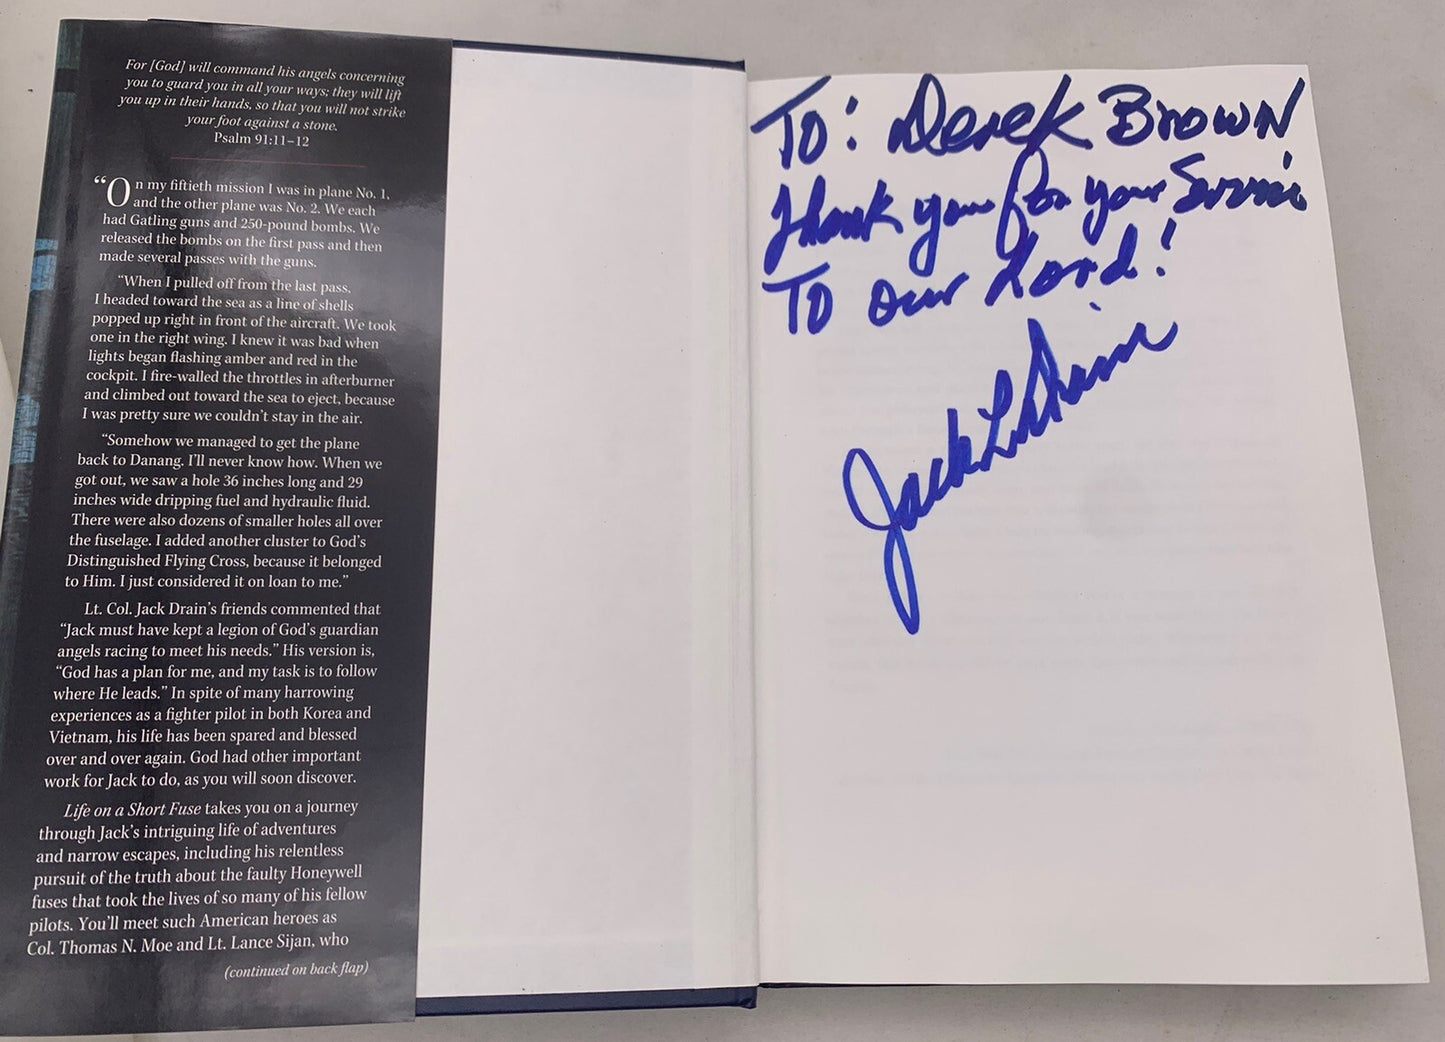 For [God] will command his angels concerning
you to guard you in all your ways; they will lift
you up in their hands, so that you will not strike
your foot against a stone.
Psalm 91:11–12
“On my fiftieth mission I was in plane No. 1,
and the other plane was No. 2. We each
had Gatling guns and 250-pound bombs. We
released the bombs on the first pass and then
made several passes with the guns.
“When I pulled off from the last pass,
I headed toward the sea as a line of shells
popped up right in front of the aircraft. We took
one in the right wing. I knew it was bad when
lights began flashing amber and red in the
cockpit. I fire-walled the throttles in afterburner
and climbed out toward the sea to eject, because
I was pretty sure we couldn’t stay in the air.
“Somehow we managed to get the plane
back to Danang. I’ll never know how. When we
got out, we saw a hole 36 inches long and 29
inches wide dripping fuel and hydraulic fluid.
There were also dozens of smaller holes all over
the fuselage. I added another cluster to God’s
Distinguished Flying Cross, because it belonged
to Him. I just considered it on loan to me.”
Lt. Col. Jack Drain’s friends commented that
“Jack must have kept a legion of God’s guardian
angels racing to meet his needs.” His version is,
“God has a plan for me, and my task is to follow
where He leads.” In spite of many harrowing
experiences as a fighter pilot in both Korea and
Vietnam, his life has been spared and blessed
over and over again. God had other important
work for Jack to do, as you will soon discover.
Life on a Short Fuse takes you on a journey
through Jack’s intriguing life of adventures
and narrow escapes, including his relentless
pursuit of the truth about the faulty Honeywell
fuses that took the lives of so many of his fellow
pilots. You’ll meet such American heroes as
Col. Thomas N. Moe and Lt. Lance Sijan, who
(continued on back flap)
To: Derek Brown
Thank you for your Service
To our Lord!
Jack L Drain